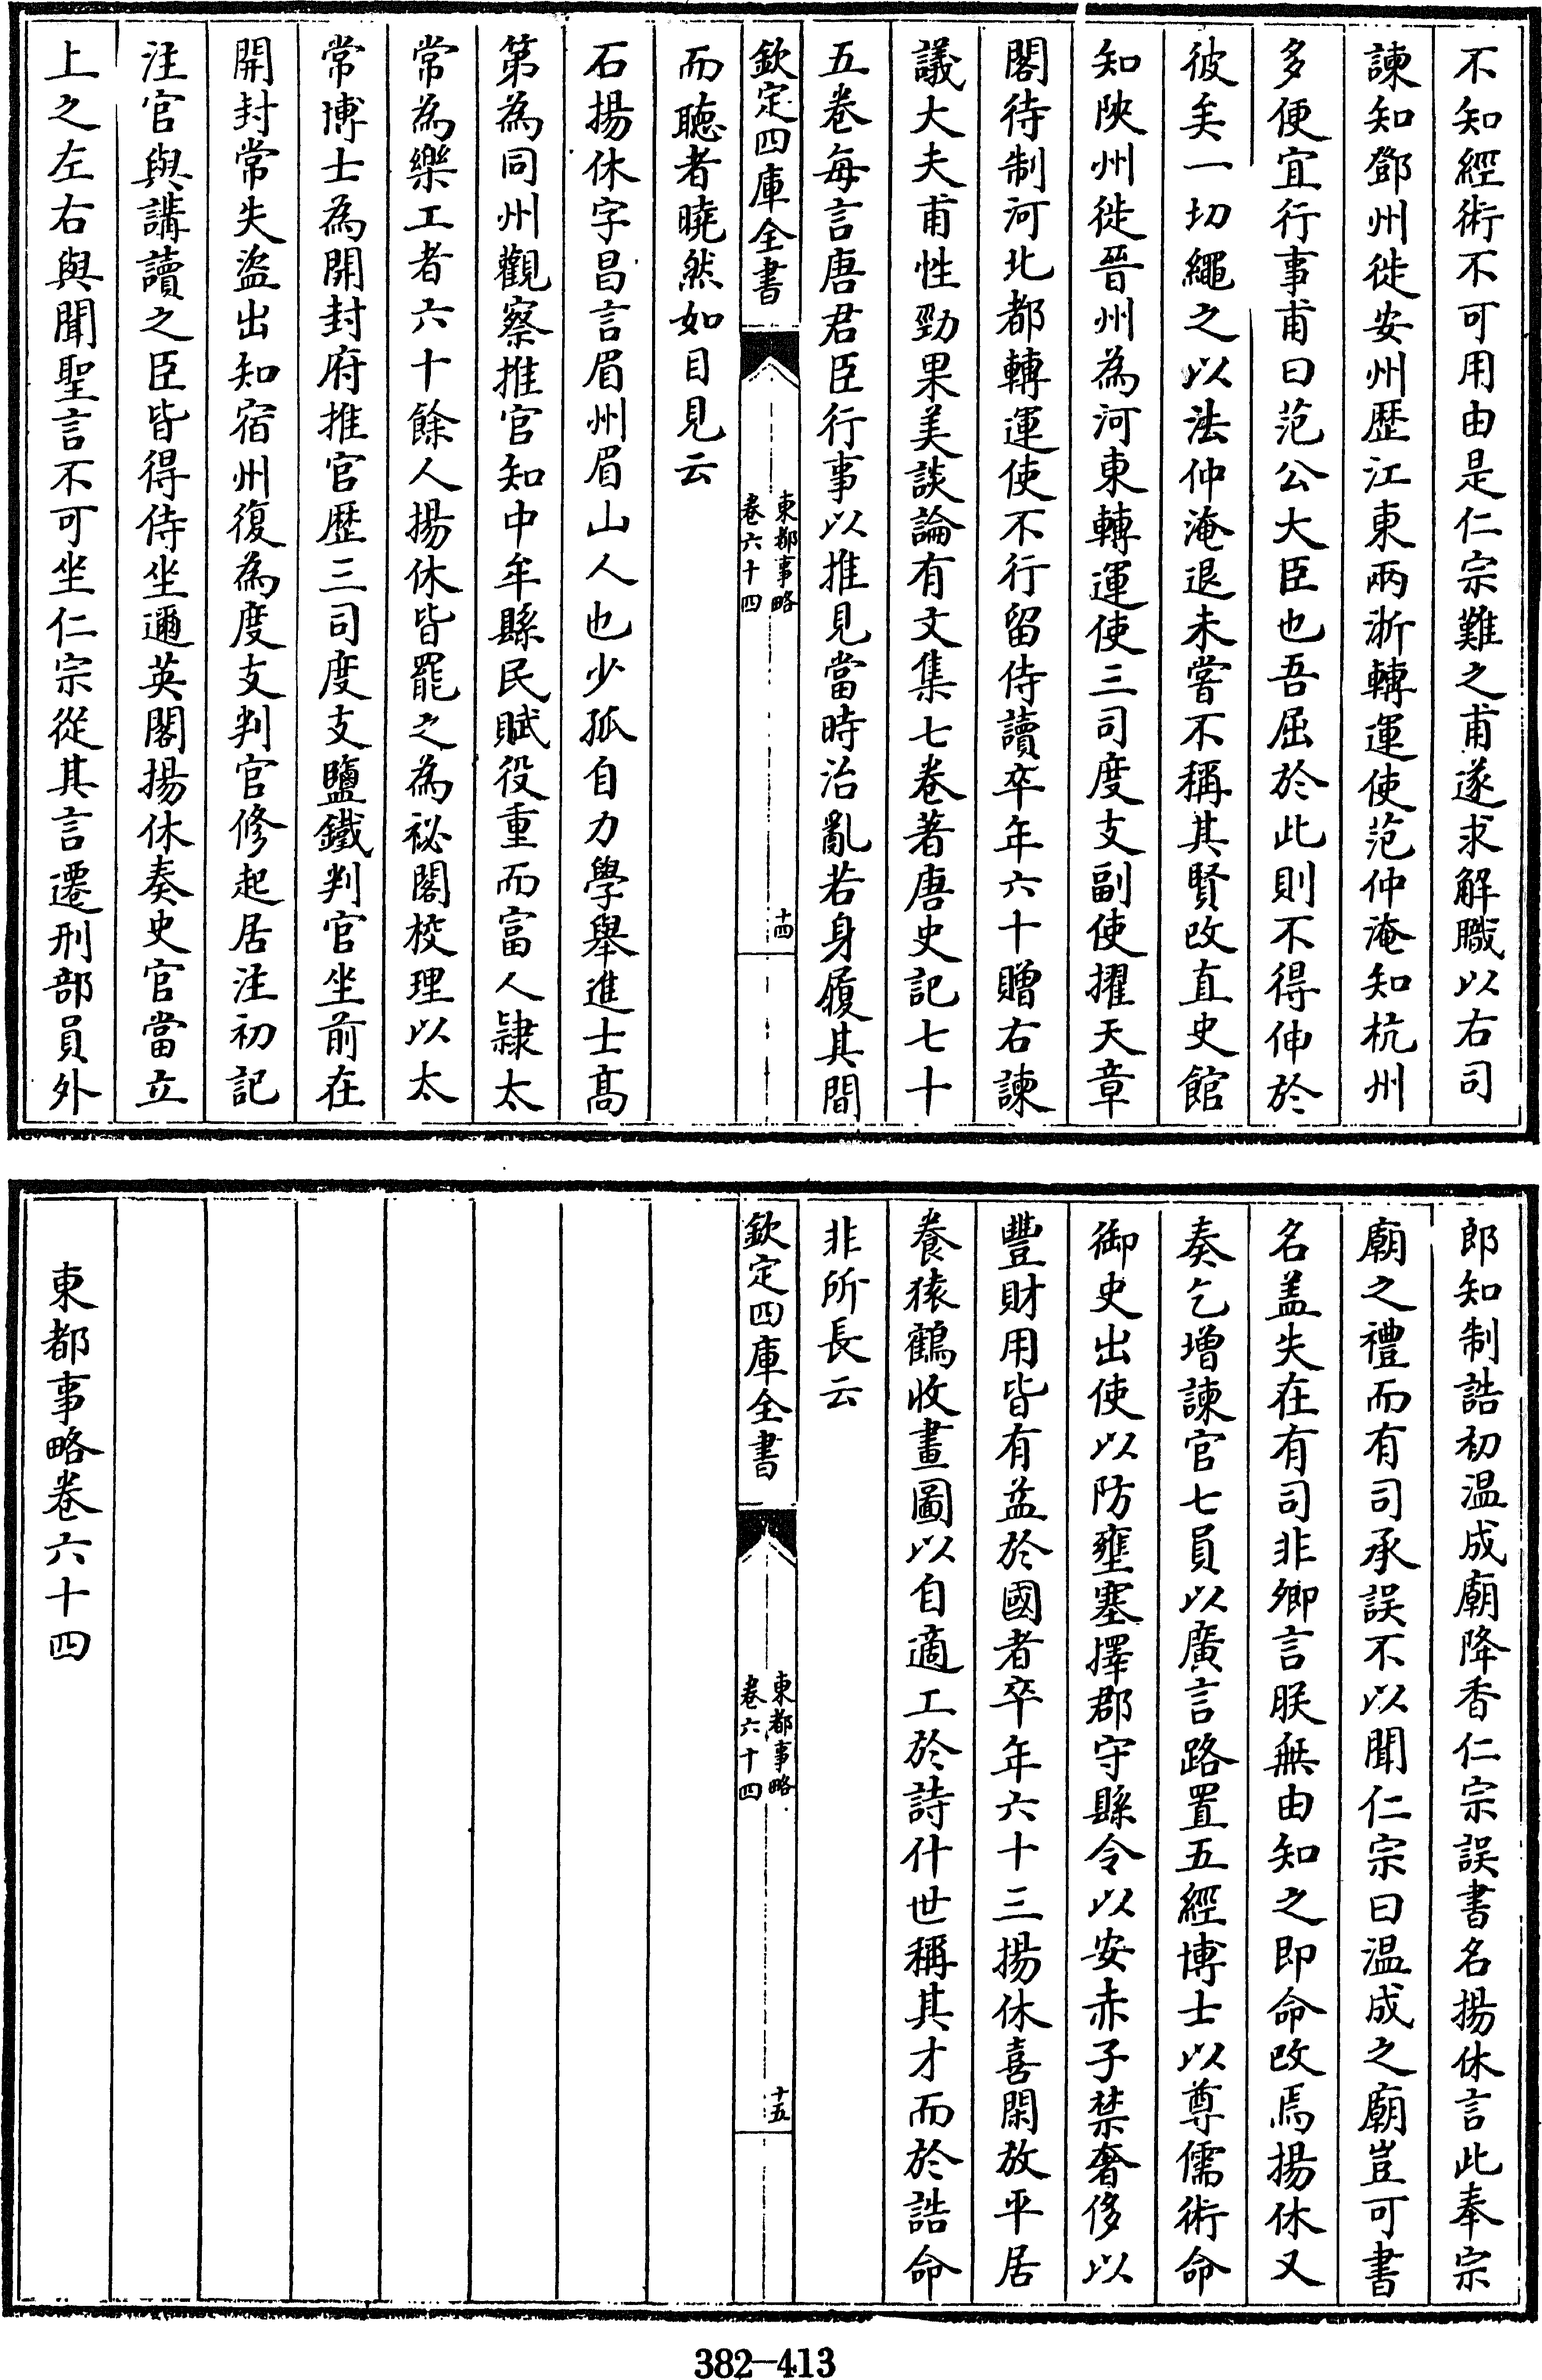 不知經術不可用由是仁宗難之甫遂求解職以右司
諫知鄧州徙安州歴江東兩浙轉運使范仲淹知杭州
多便宜行事甫曰范公大臣也吾屈於此則不得伸於
彼矣一切繩之以法仲淹退未嘗不稱其賢改直史館
知陜州徙晉州為河東轉運使三司度支副使擢天章
閣待制河北都轉運使不行留侍讀卒年六十贈右諫
議大夫甫性勁果美談論有文集七卷著唐史記七十
五卷每言唐君臣行事以推見當時治亂若身履其間
欽定四庫全書
東都事略
卷六十四
十四
而聽者曉然如目見云
石揚休字昌言眉州眉山人也少孤自力學舉進士髙
第為同州觀察推官知中牟縣民賦役重而富人隷太
常為樂工者六十餘人揚休皆罷之為祕閣校理以太
常博士為開封府推官歴三司度支鹽鐵判官坐前在
開封常失盜出知宿州復為度支判官修起居注初記
注官與講讀之臣皆得侍坐邇英閣揚休奏史官當立
上之左右與聞聖言不可坐仁宗從其言遷刑部員外
郎知制誥初温成廟降香仁宗誤書名揚休言此奉宗
廟之禮而有司承誤不以聞仁宗曰温成之廟豈可書
名盖失在有司非卿言朕無由知之即命改焉揚休又
奏乞增諫官七員以廣言路置五經博士以尊儒術命
御史出使以防壅塞擇郡守縣令以安赤子禁奢侈以
豐財用皆有益於國者卒年六十三揚休喜閑放平居
養猿鶴收畫圖以自適工於詩什世稱其才而於誥命
非所長云
欽定四庫全書
東都事略
卷六十四
十五
東都事略卷六十四
382-413